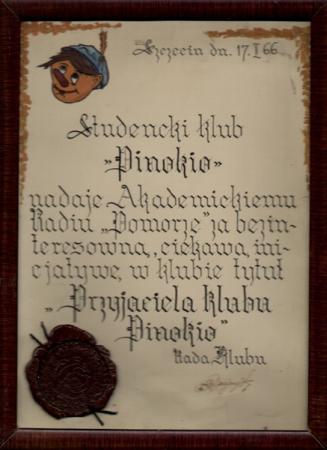 Szczecin dn. 17.I 66
Studencki klub
„Pinokio”
nadaje Akademickiemu
Radiu „Pomorze” za bezin-
teresowną, ciekawą, ini-
cjatywę, w klubie tytuł
„Przyjaciela klubu
Pinokio”
Rada Klubu